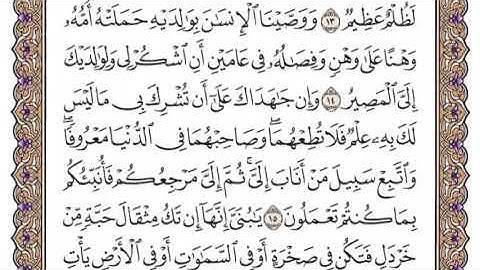 لَظُلْمٌ عَظِيمٌ ١٣ وَوَصَّيْنَا ٱلْإِنسَٰنَ بِوَٰلِدَيْهِ حَمَلَتْهُ أُمُّهُۥ
وَهْنًا عَلَىٰ وَهْنٍ وَفِصَٰلُهُۥ فِى عَامَيْنِ أَنِ ٱشْكُرْ لِى وَلِوَٰلِدَيْكَ
إِلَىَّ ٱلْمَصِيرُ ١٤ وَإِن جَٰهَدَاكَ عَلَىٰٓ أَن تُشْرِكَ بِى مَا لَيْسَ
لَكَ بِهِۦ عِلْمٌ فَلَا تُطِعْهُمَا ۖ وَصَاحِبْهُمَا فِى ٱلدُّنْيَا مَعْرُوفًا ۖ
وَٱتَّبِعْ سَبِيلَ مَنْ أَنَابَ إِلَىَّ ۚ ثُمَّ إِلَىَّ مَرْجِعُكُمْ فَأُنَبِّئُكُم
بِمَا كُنتُمْ تَعْمَلُونَ ١٥ يَٰبُنَىَّ إِنَّهَآ إِن تَكُ مِثْقَالَ حَبَّةٍ مِّنْ
خَرْدَلٍ فَتَكُن فِى صَخْرَةٍ أَوْ فِى ٱلسَّمَٰوَٰتِ أَوْ فِى ٱلْأَرْضِ يَأْتِ